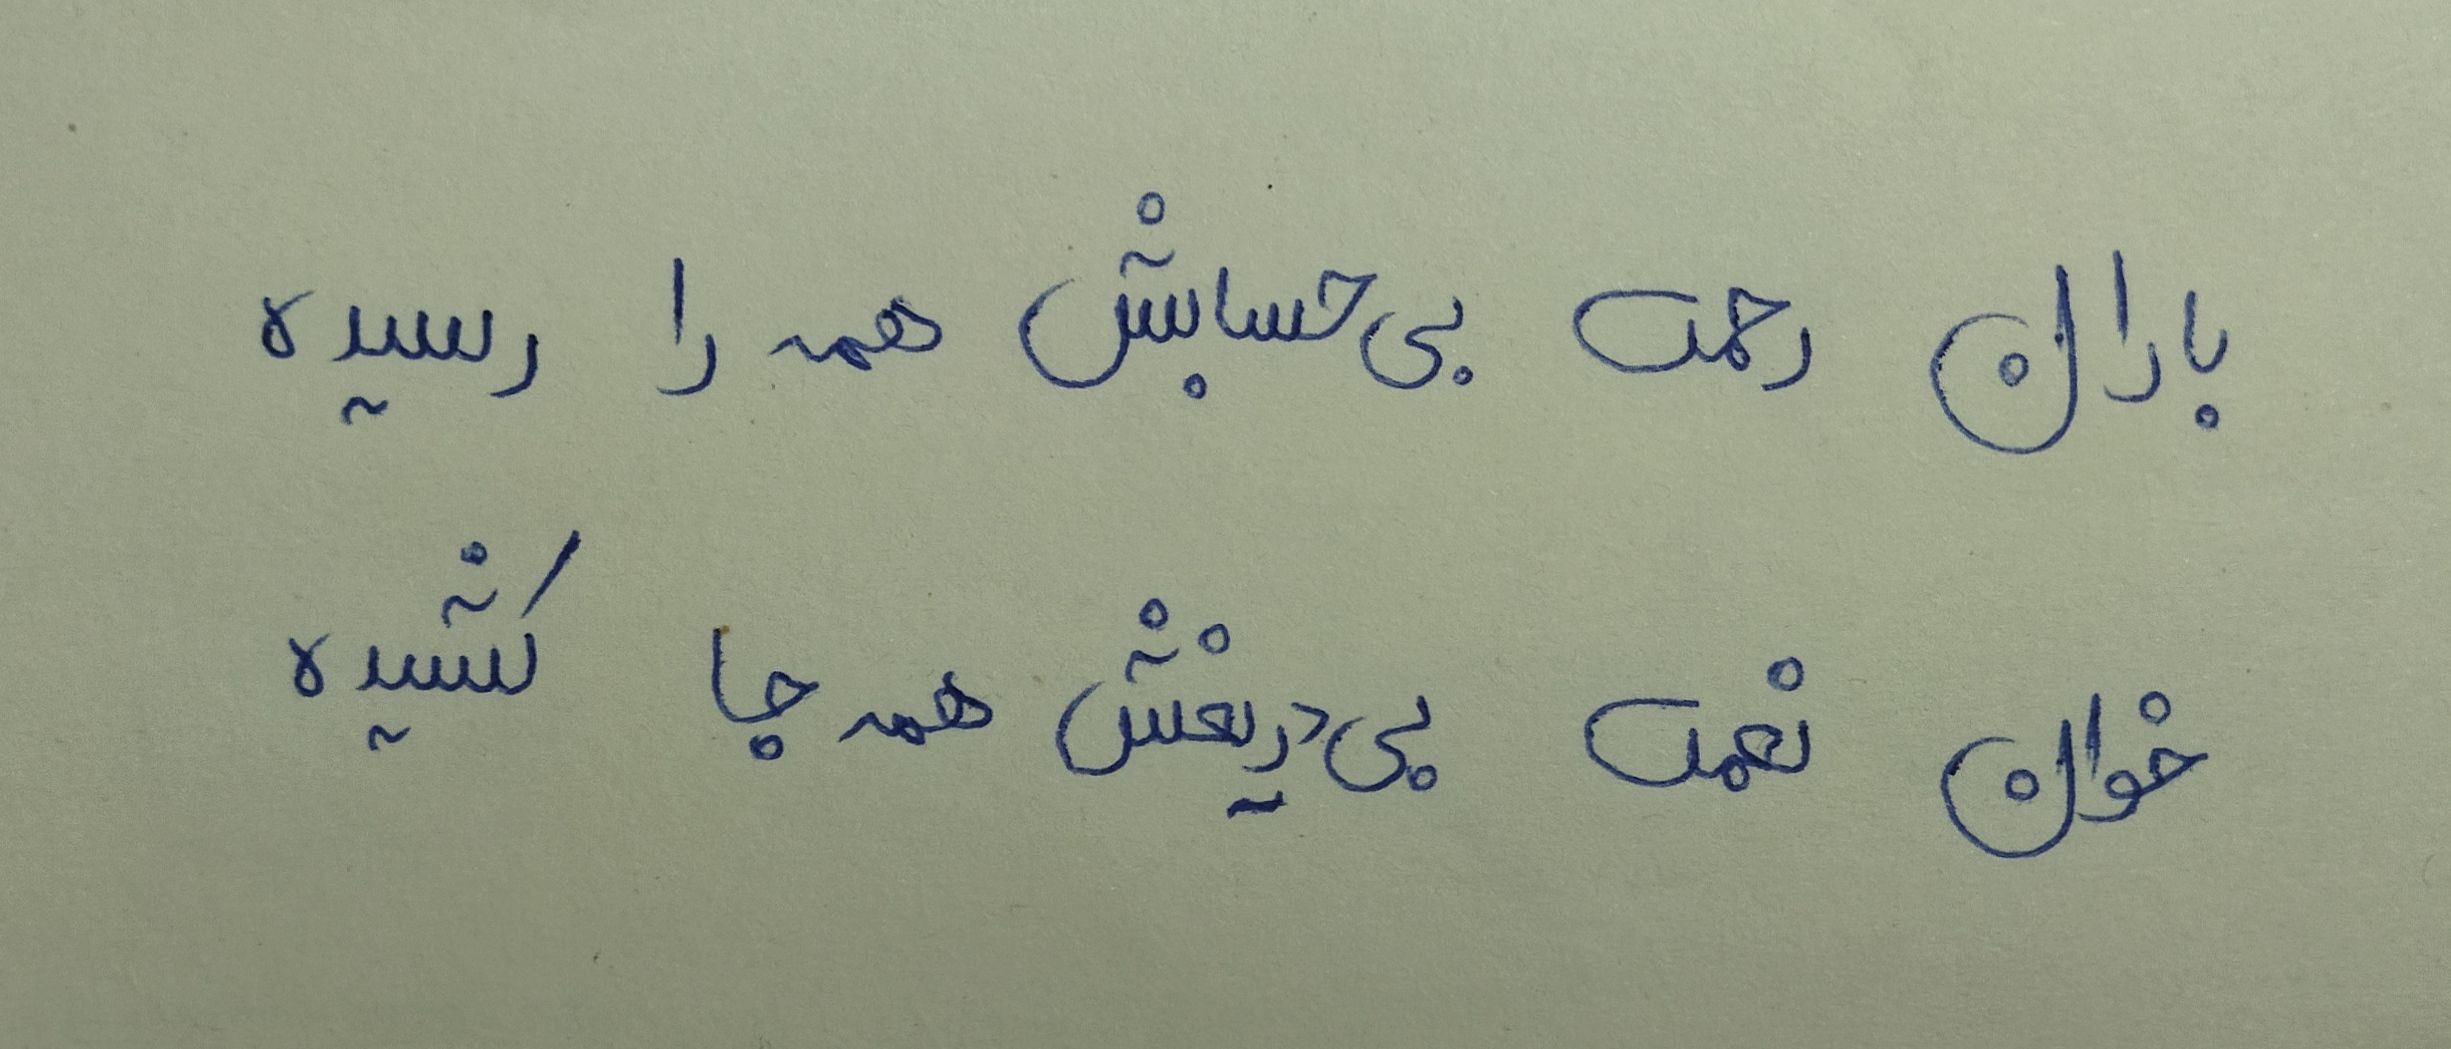 باران رحمت بی‌حسابش همه را رسیده
خوان نعمت بی‌دریغش همه جا کشیده